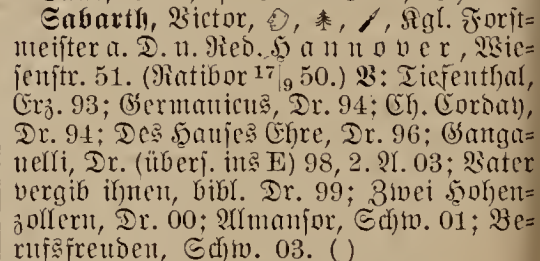 Sabarth, Victor, Kgl. Forst=
meister a. D. u. Red. Hannover, Wie=
senstr. 51. (Ratibor 17|9 50.) V: Tiefenthal,
Erz. 93; Germanicus, Dr. 94; Ch. Corday,
Dr. 94; Des Hauses Ehre, Dr. 96; Ganga=
nelli, Dr. (übers. ins E) 98, 2. A. 03; Vater
vergib ihnen, bibl. Dr. 99; Zwei Hohen=
zollern, Dr. 00; Almansor, Schw. 01; Be=
rufsfreuden, Schw. 03. ()